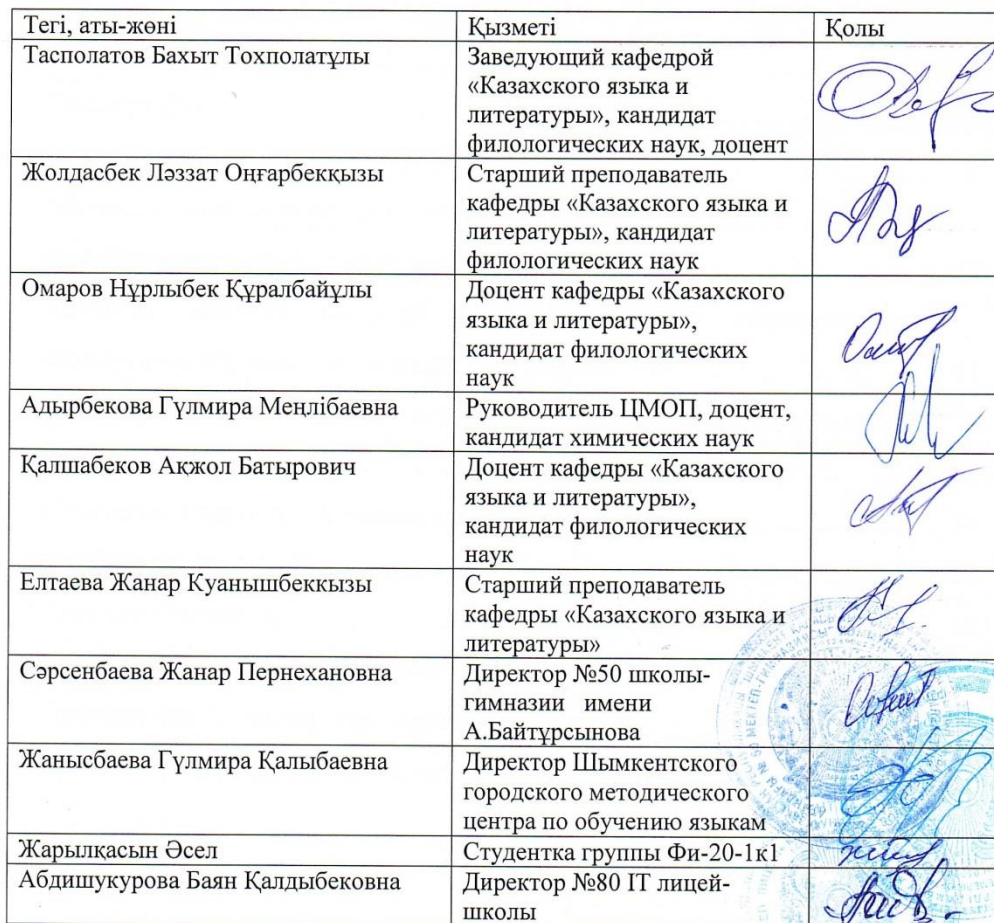 Тегі, аты-жөні Қызметі Қолы
Тасполатов Бахыт Тохполатұлы Заведующий кафедрой
«Казахского языка и
литературы», кандидат
филологических наук, доцент
Жолдасбек Ләззат Оңғарбекқызы Старший преподаватель
кафедры «Казахского языка и
литературы», кандидат
филологических наук
Омаров Нұрлыбек Құралбайұлы Доцент кафедры «Казахского
языка и литературы»,
кандидат филологических
наук
Адырбекова Гүлмира Меңлібаевна Руководитель ЦМОП, доцент,
кандидат химических наук
Қалшабеков Ақжол Батырович Доцент кафедры «Казахского
языка и литературы»,
кандидат филологических
наук
Елтаева Жанар Куанышбеккызы Старший преподаватель
кафедры «Казахского языка и
литературы»
Сәрсенбаева Жанар Пернехановна Директор №50 школы-
гимназии имени
А.Байтұрсынова
Жанысбаева Гүлмира Қалыбаевна Директор Шымкентского
городского методического
центра по обучению языкам
Жарылқасын Әсел Студентка группы Фи-20-1к1
Абдишукурова Баян Қалдыбековна Директор №80 IT лицей-
школы